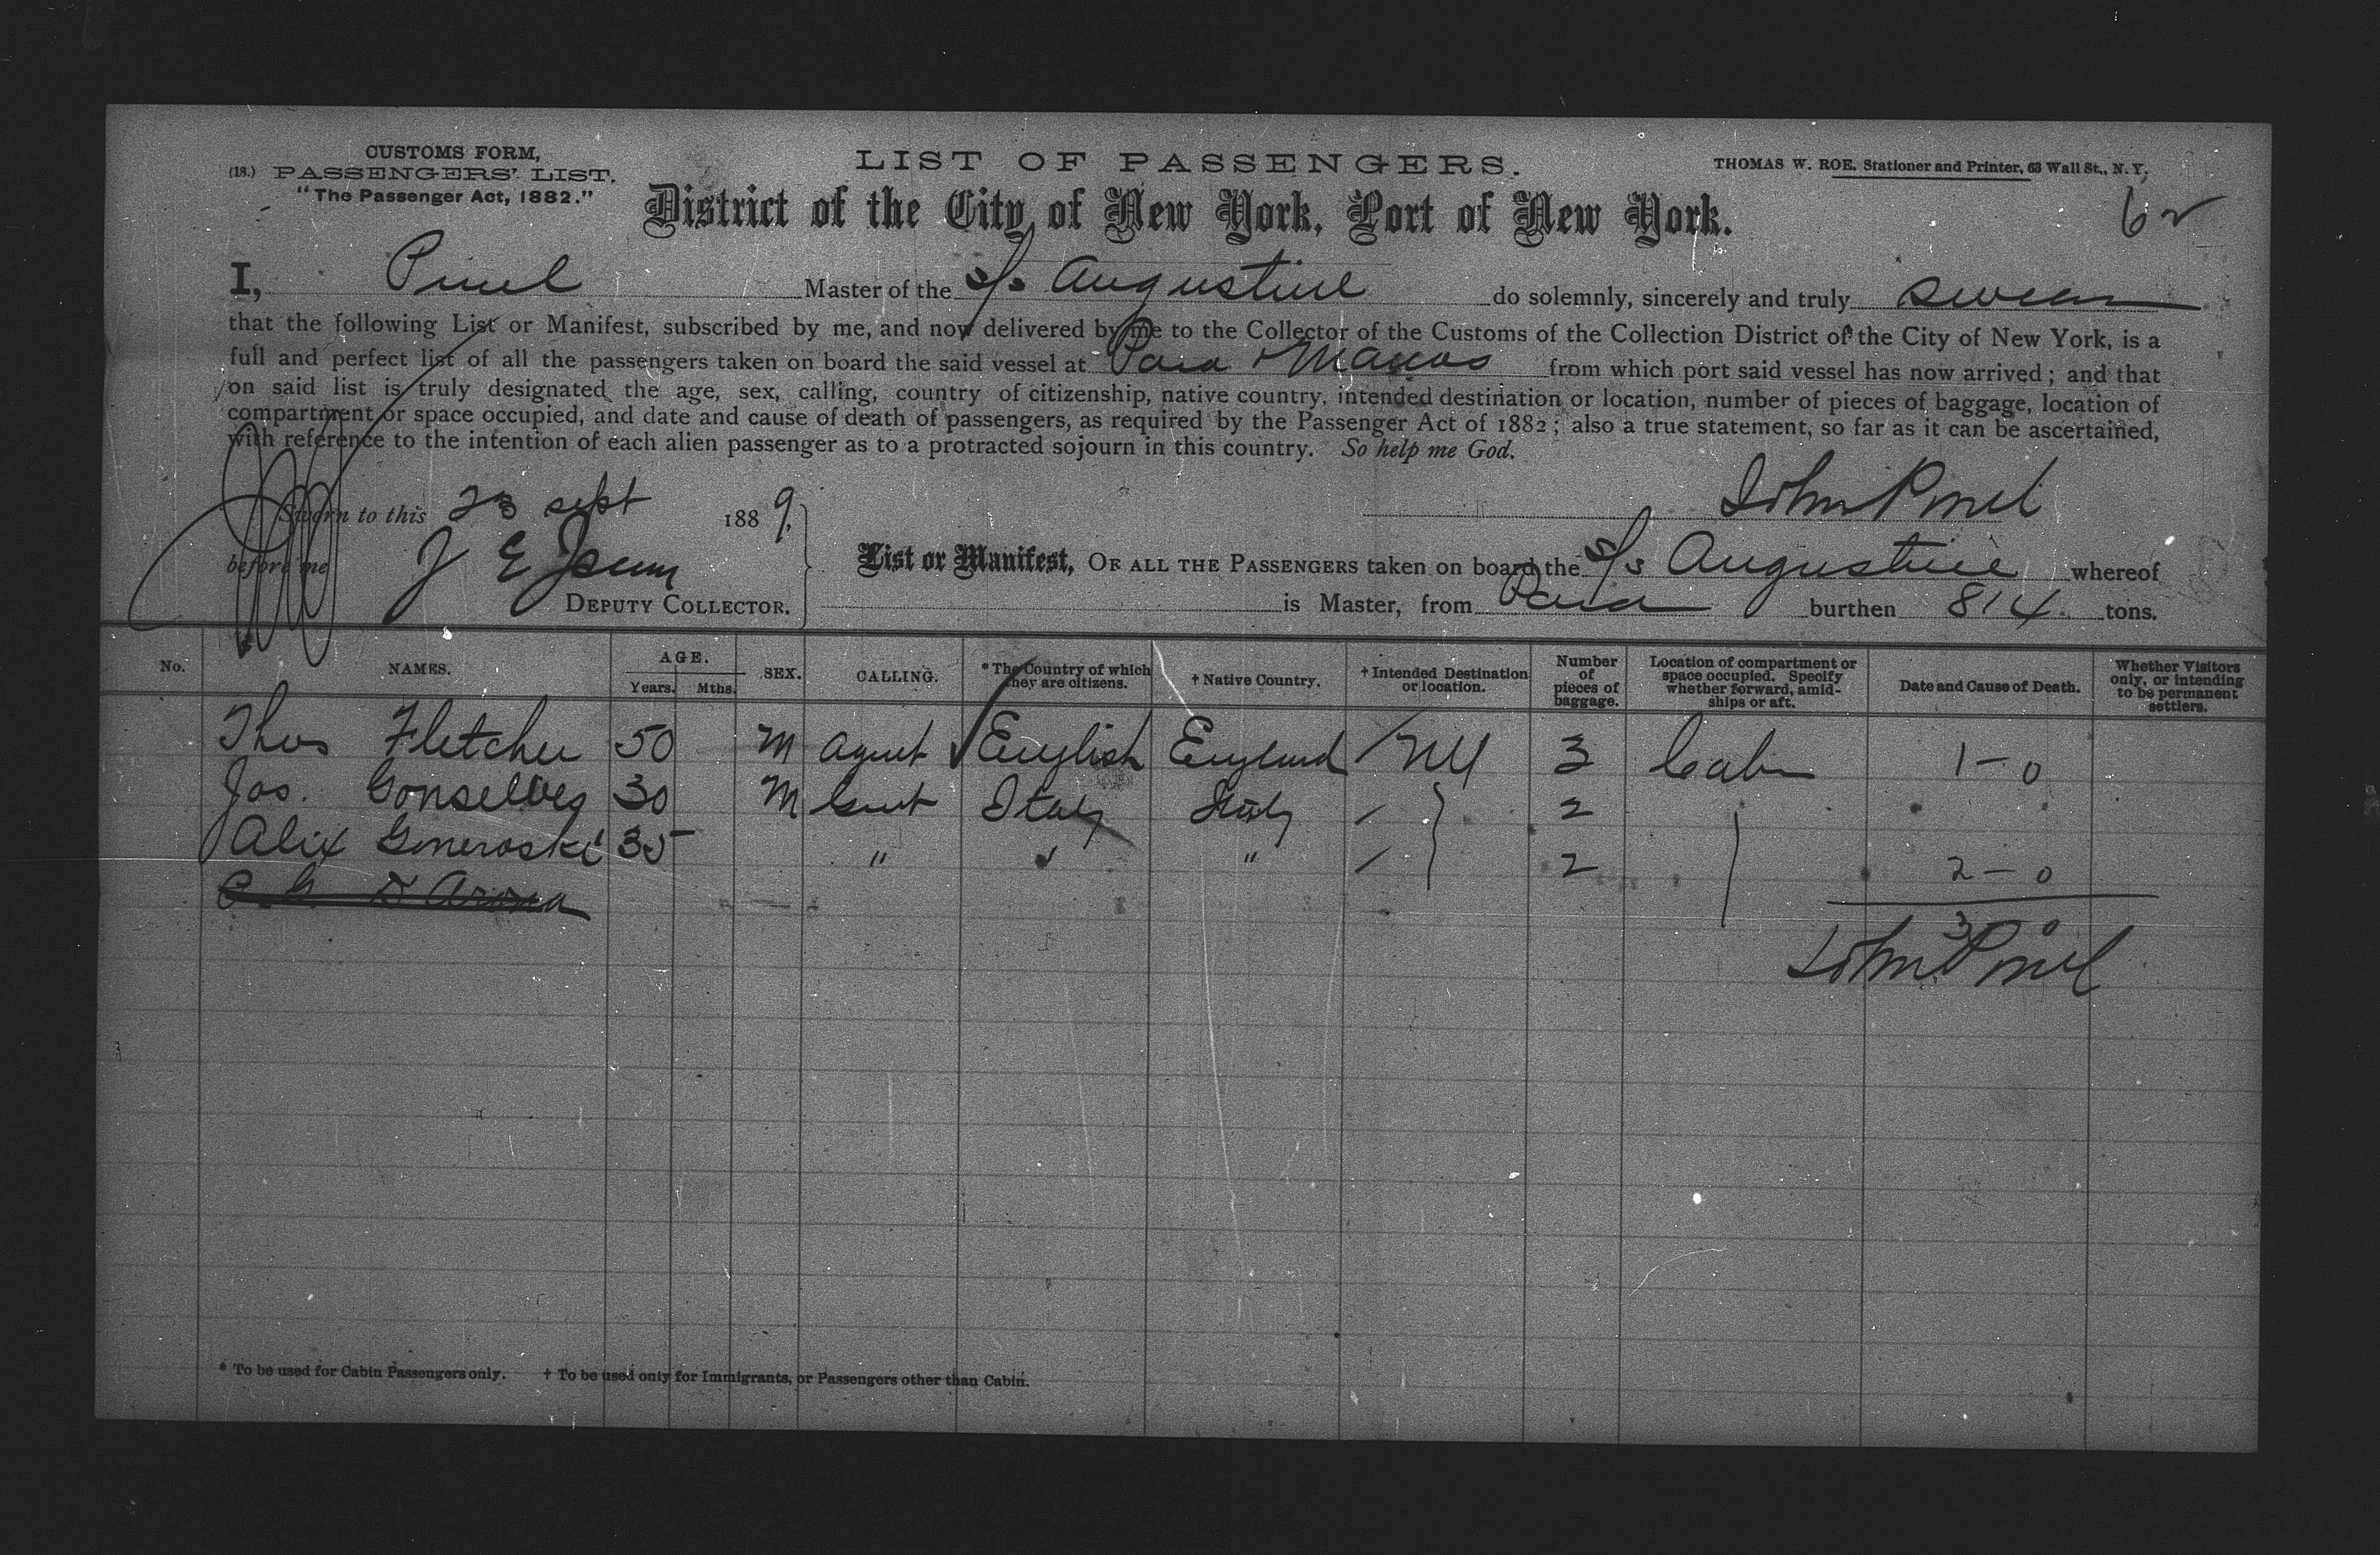 CUSTOMS FORM,
(18.) PASSENGERS' LIST.
"The Passenger Act, 1882."
LIST OF PASSENGERS.
THOMAS W. ROE, Stationer and Printer, 63 Wall St., N. Y.
District of the City of New York, Port of New York.
62
I, Pinel Master of the s/s Augustine do solemnly, sincerely and truly swear
that the following List or Manifest, subscribed by me, and now delivered by me to the Collector of the Customs of the Collection District of the City of New York, is a
full and perfect list of all the passengers taken on board the said vessel at Para & Manaos from which port said vessel has now arrived; and that
on said list is truly designated the age, sex, calling, country of citizenship, native country, intended destination or location, number of pieces of baggage, location of
compartment or space occupied, and date and cause of death of passengers, as required by the Passenger Act of 1882; also a true statement, so far as it can be ascertained,
with reference to the intention of each alien passenger as to a protracted sojourn in this country. So help me God.
Sworn to this 23 sept 1889.
John Pinel
before me J E
DEPUTY COLLECTOR.
List or Manifest, OF ALL THE PASSENGERS taken on board the s/s Augustine whereof
is Master, from Para burthen 814 tons.
No. NAMES. AGE. Years. Mths. SEX. CALLING. * The Country of which they are citizens. † Native Country. † Intended Destination or location. Number of pieces of baggage. Location of compartment or space occupied. Specify whether forward, amidships or aft. Date and Cause of Death. Whether Visitors only, or intending to be permanent settlers.
Thos Fletcher 50 M Agent English England / NY 3 Cabin 1-0
Jas. Gonselves 30 M Gent Italy Italy / 2
Alix 35 " " " / 2 2-0
3 0
John Pinel
* To be used for Cabin Passengers only. † To be used only for Immigrants, or Passengers other than Cabin.